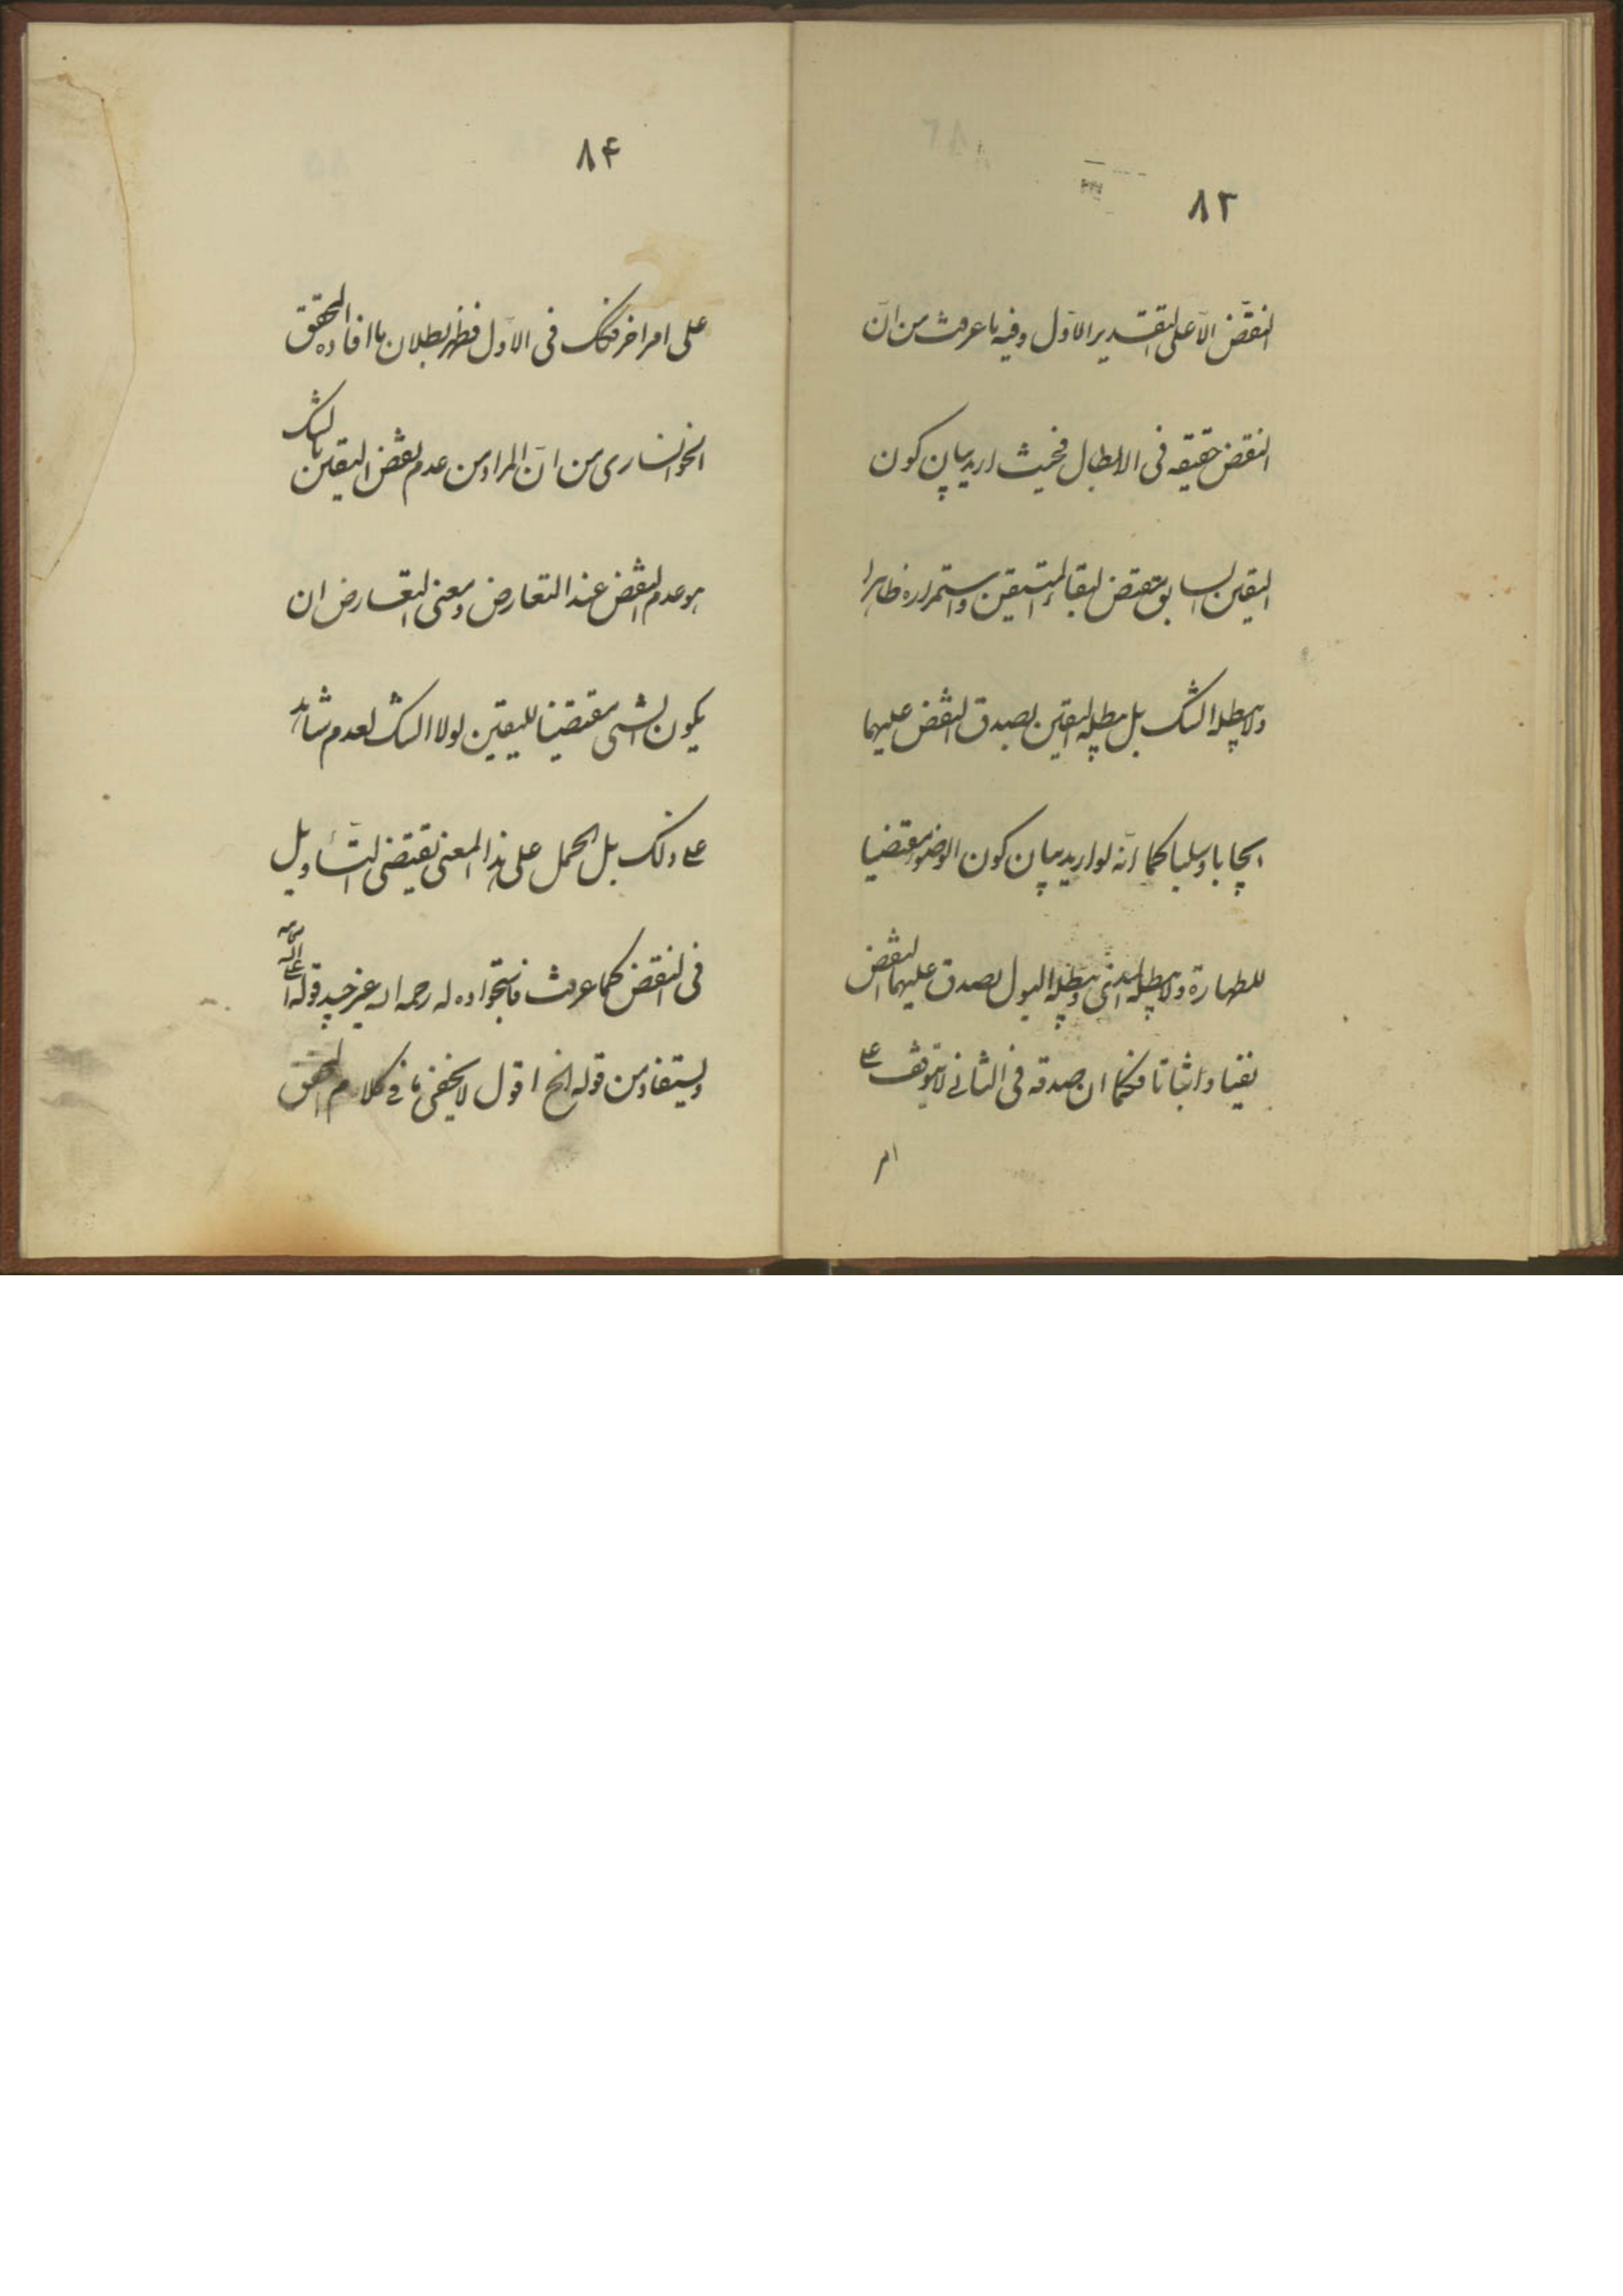 ٨٣
النقض الّا علی التقدیر الاوّل وفیه ما عرفت من انّ
النقض حقیقه فی الابطال فحیث ارید بیان کون
الیقین السابق مقتض لبقاء المتیقن واستمراره ظاهرا
ولا یبطله الشک بل یبطله الیقین یصدق النقض علیهما
ایجابا وسلبا کما انّه لو ارید بیان کون الوضوء مقتضیا
للطهارة ولا یبطله المذی ویبطله البول یصدق علیهما النقض
نفیا واثباتا فکما ان صدقه فی الثانی لا یتوقف علی
امر
٨۴
علی امر اخر فکک فی الاوّل فظهر بطلان ما افاده المحقق
الخوانساری من انّ المراد من عدم نقض الیقین بالشک
هو عدم النقض عند التعارض ومعنی التعارض ان
یکون الشیی مقتضیا للیقین لولا الشک لعدم شاهد
علی ذلک بل الحمل علی هذا المعنی یقتضی التّاویل
فی النقض کما عرفت فاستجواده له رحمه الله غیر جید قوله اعلی الله
ویستفاد من قوله الخ اقول لا یخفی ما فی کلام المحقق